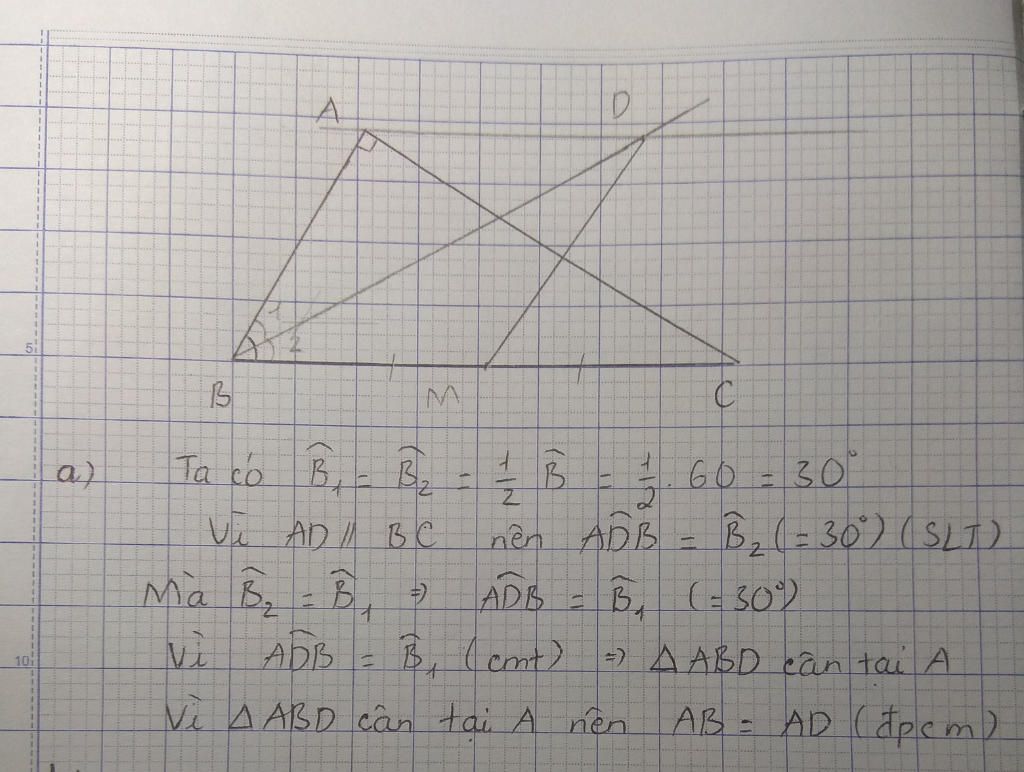 A D
1
2
5
B M C
a) Ta có B̂₁ = B̂₂ = 1/2 B̂ = 1/2 . 60 = 30°
Vì AD // BC nên ADB̂ = B̂₂ (= 30°) (SLT)
Mà B̂₂ = B̂₁ ⇒ ADB̂ = B̂₁ (= 30°)
10
Vì ADB̂ = B̂₁ (cmt) ⇒ Δ ABD cân tại A
Vì Δ ABD cân tại A nên AB = AD (đpcm)